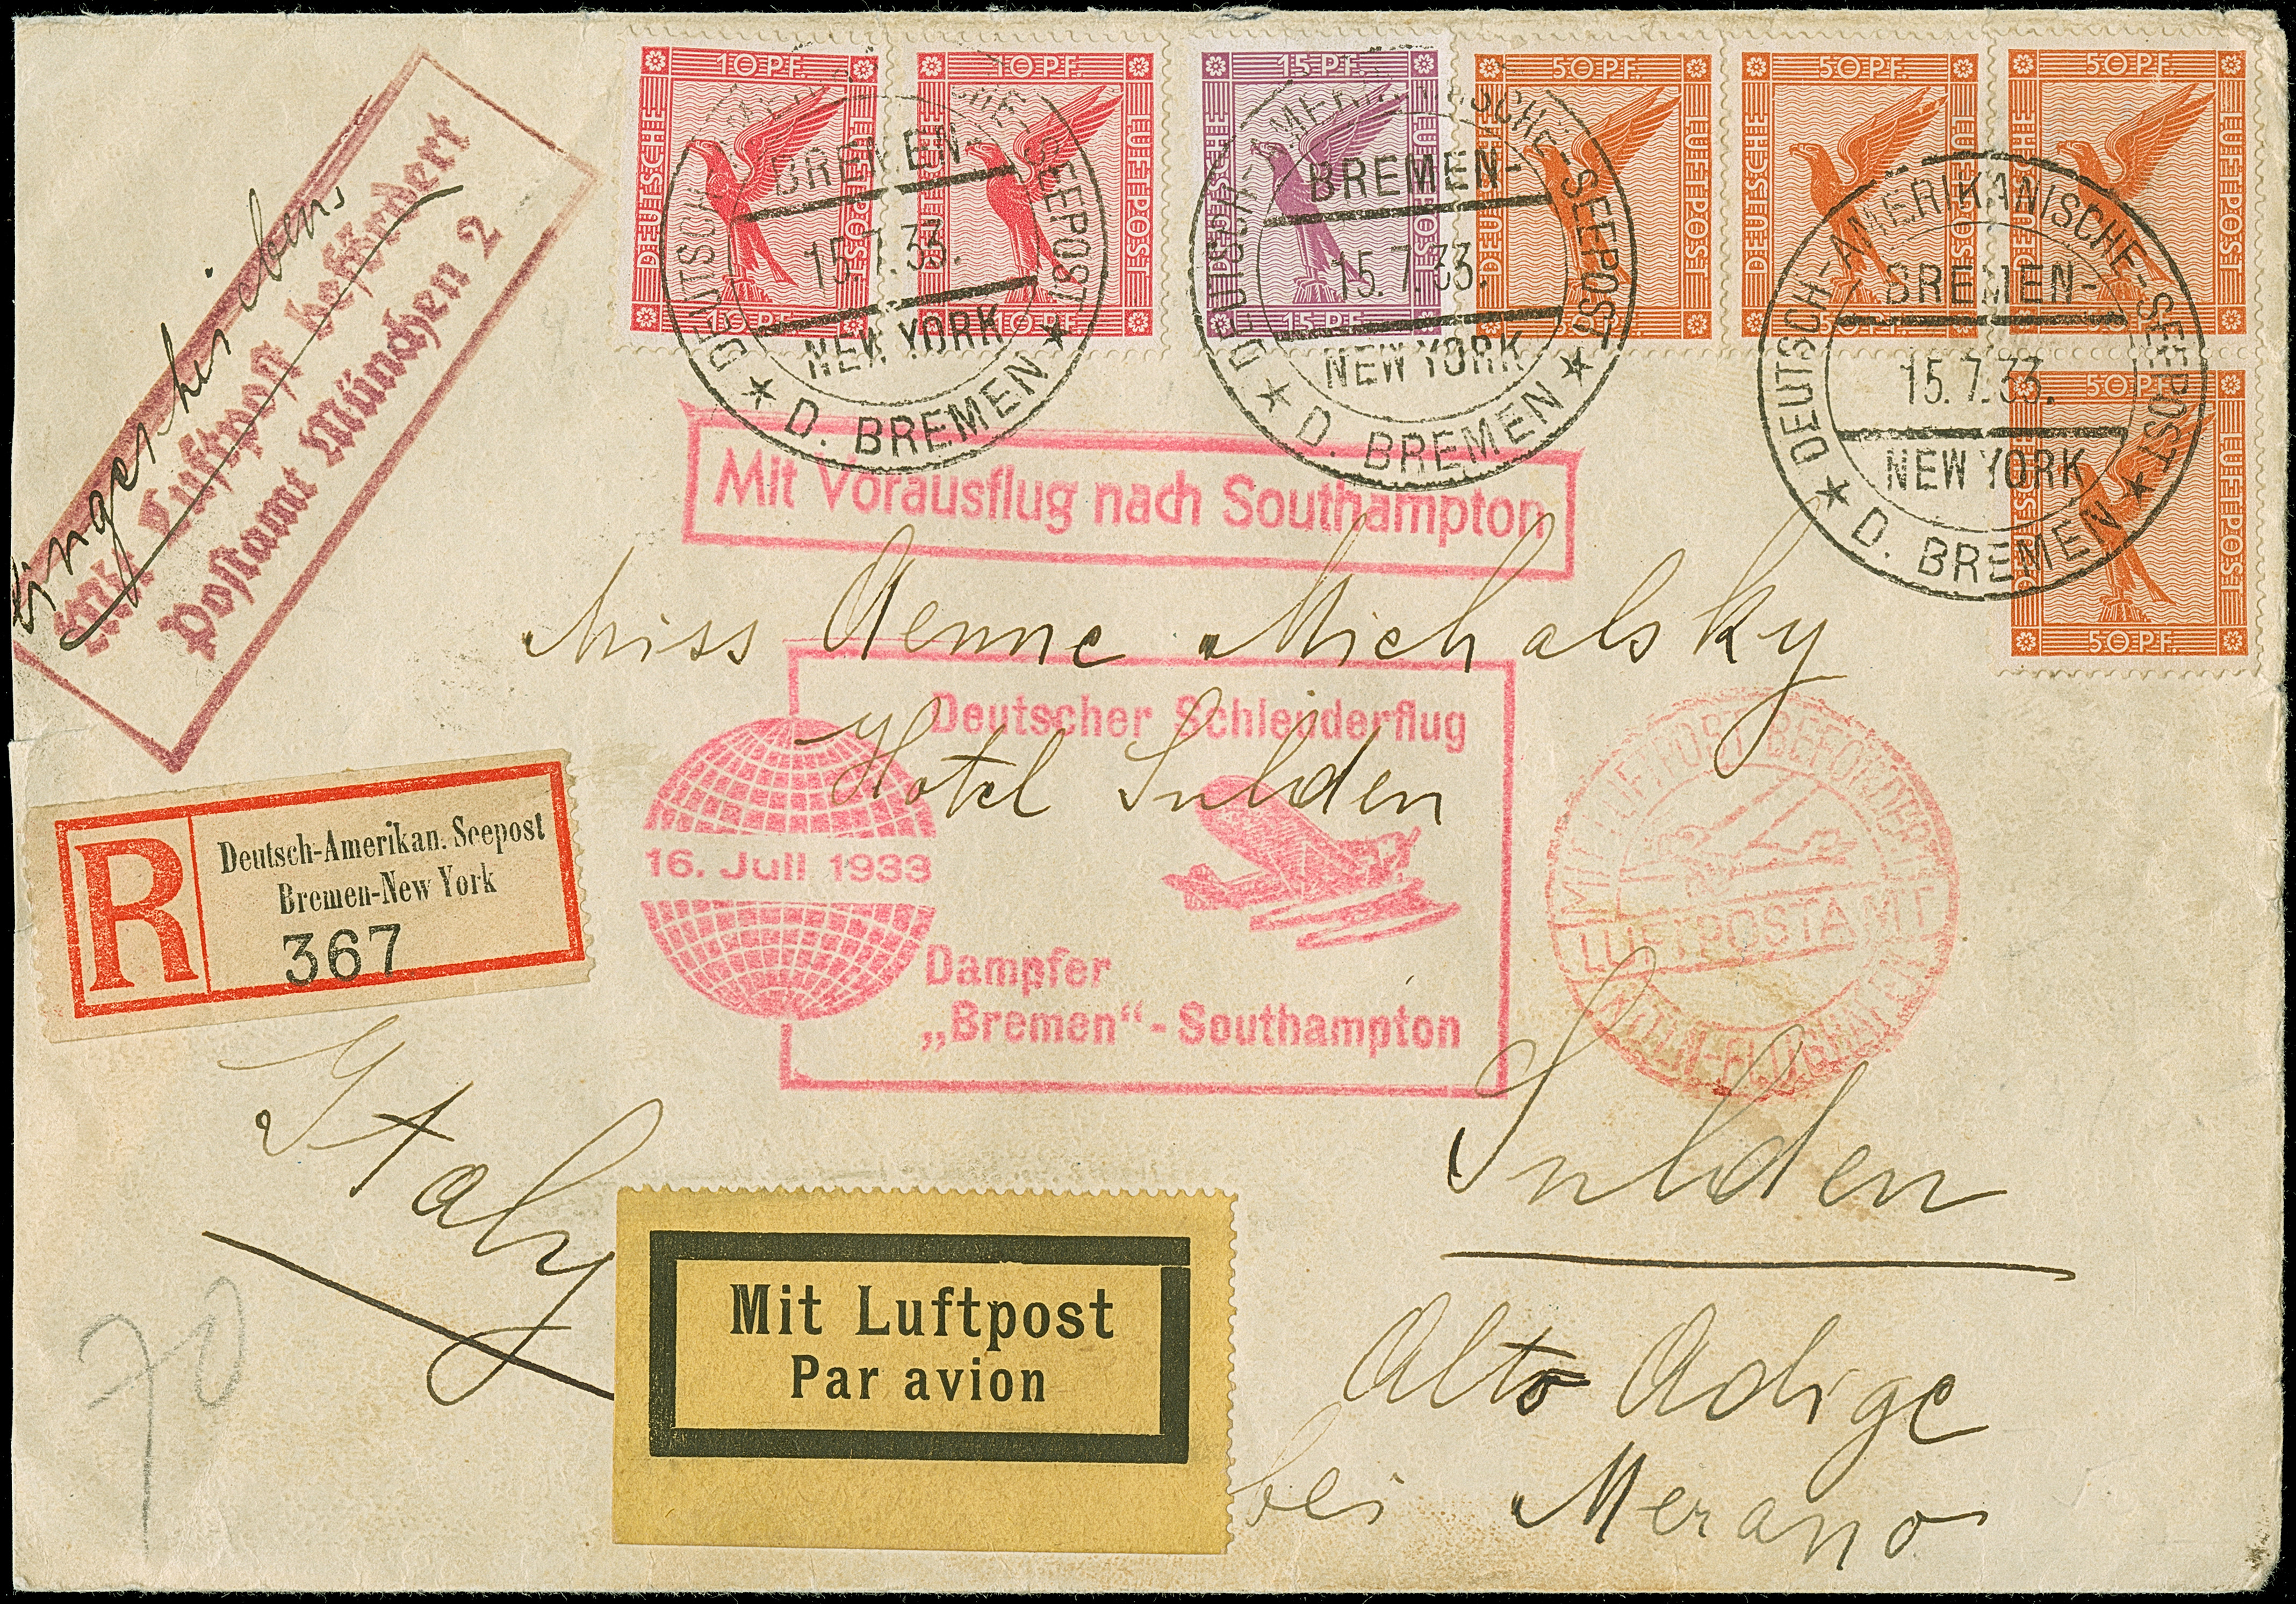 10 PF. DEUTSCHE LUFTPOST 10 PF.
10 PF. DEUTSCHE LUFTPOST 10 PF.
15 PF. DEUTSCHE LUFTPOST 15 PF.
50 PF. DEUTSCHE LUFTPOST
50 PF. DEUTSCHE LUFTPOST 50 PF.
50 PF. DEUTSCHE LUFTPOST
50 PF. DEUTSCHE LUFTPOST 50 PF.
DEUTSCH-AMERIKANISCHE-SEEPOST
BREMEN-
15.7.33.
NEW YORK
★ D. BREMEN ★
DEUTSCH-AMERIKANISCHE-SEEPOST
BREMEN-
15.7.33.
NEW YORK
★ D. BREMEN ★
DEUTSCH-AMERIKANISCHE-SEEPOST
BREMEN-
15.7.33.
NEW YORK
★ D. BREMEN ★
Eingeschrieben
Mit Luftpost befördert
Postamt München 2
Mit Vorausflug nach Southampton
Miss Aenne Michalsky
Hotel Sulden
Deutscher Schleuderflug
16. Juli 1933
Dampfer
„Bremen“ - Southampton
MIT LUFTPOST BEFÖRDERT
LUFTPOSTAMT
R
Deutsch-Amerikan. Seepost
Bremen-New York
367
Italy
Sulden
Alto Adige
bei Merano
70
Mit Luftpost
Par avion